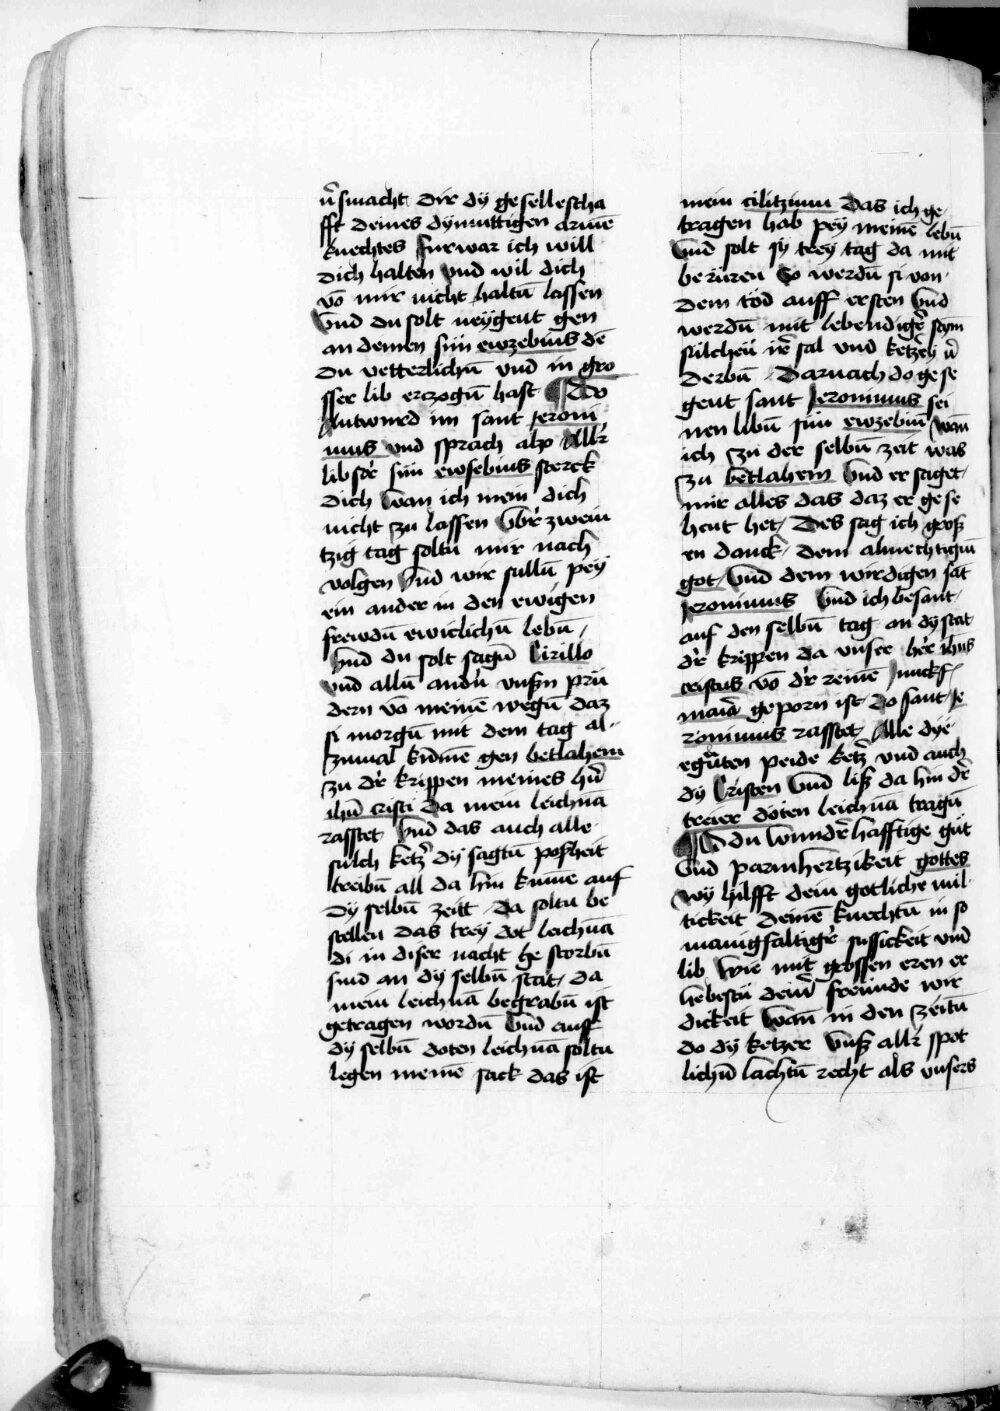 v̄smacht dir dÿ gesellescha
fft deines dÿmuttigen armē
knechtes furwar ich will
dich halten vnd wil dich
vō mir nicht haltū lassen
Vnd du solt neÿgent gen
an deinen sūn ewzebius dē
du vetterlichū vnd in gro
sser lib erczogū hast ¶ Do
Antwurd im sant jeroni
mus vnd sprach alzo Allr̄
libster sūn ewsebius sterck
dich wan ich mein dich
nicht zu lassen vbr̄ zwein
tzig tag soltu mir nach
volgen vnd wir sullū peÿ
ein ander in den ewigen
frewdū ewiclichū lebū /
vnd du solt sagū Cirillo
vnd allū andn̄ vnßn prü
dern vō meinē wegū daz
si morgū mit dem tag al-
zumal kumē gen betlahem
zu dr̄ krippen meines hn̄
ihū cristi da mein leichnā
rasstet vnd das auch alle
sulch ketzr̄ dÿ sagtū poßheit
treibū all da hin kumē auf
dÿ selbū zeitt da soltu be
stellen das treÿ dot leichnā
di in diser nacht he storbū
sind an dÿ selbū stat / da
mein leichnā begrabū ist
getragen wordū vnd auff
dÿ selbū doten leichnā soltu
legen meinē sack das ist
mein cilitzium das ich ge
tragen hab peÿ meinē lebū
vnd solt sÿ treÿ tag da mit
berüren So werdū si von
dem tod auff ersten vnd
werdū mit lebendigr̄ stym
sülcheü ir̄ sal vnd ketzeÿ v̄
derbū / Darnach do gese
gent sant Jeronimus sei
nen libū sūn ewzebiū wan̄
ich zu der selbū zeit was
zu betlahem vnd er saget
mir alles das daz er gese
hent het / Des sag ich groß
en danck / dem almechtigū
got / vnd dem wirdigen sāt
jeronimus vnd ich besant
auf den selbū tag an dÿ stat
dr̄ krippen da vnser hēr ihus
cristus vō dr̄ reinē junckf
maiā geporn ist do sant je
ronimus rasstet / Alle dÿe
egn̄ten peide ketzr̄ vnd auch
dÿ Cristen vnd liß da hin dr̄
treier doten leichnā tragū
¶ O du wundr̄hafftige güt
vnd parmhertzikeit gottes
wÿ hilfft dein gotliche mil-
tickeit deinē knechtū in so
manigfaltigr̄ sussickeit vnd
lib wie mit grossen eren er
hebestū deinr̄ freünde wir
dickeit wan̄ in den zeitū
do dÿ ketzer vnß allr̄ spot
lichū lachtū recht als vnsers